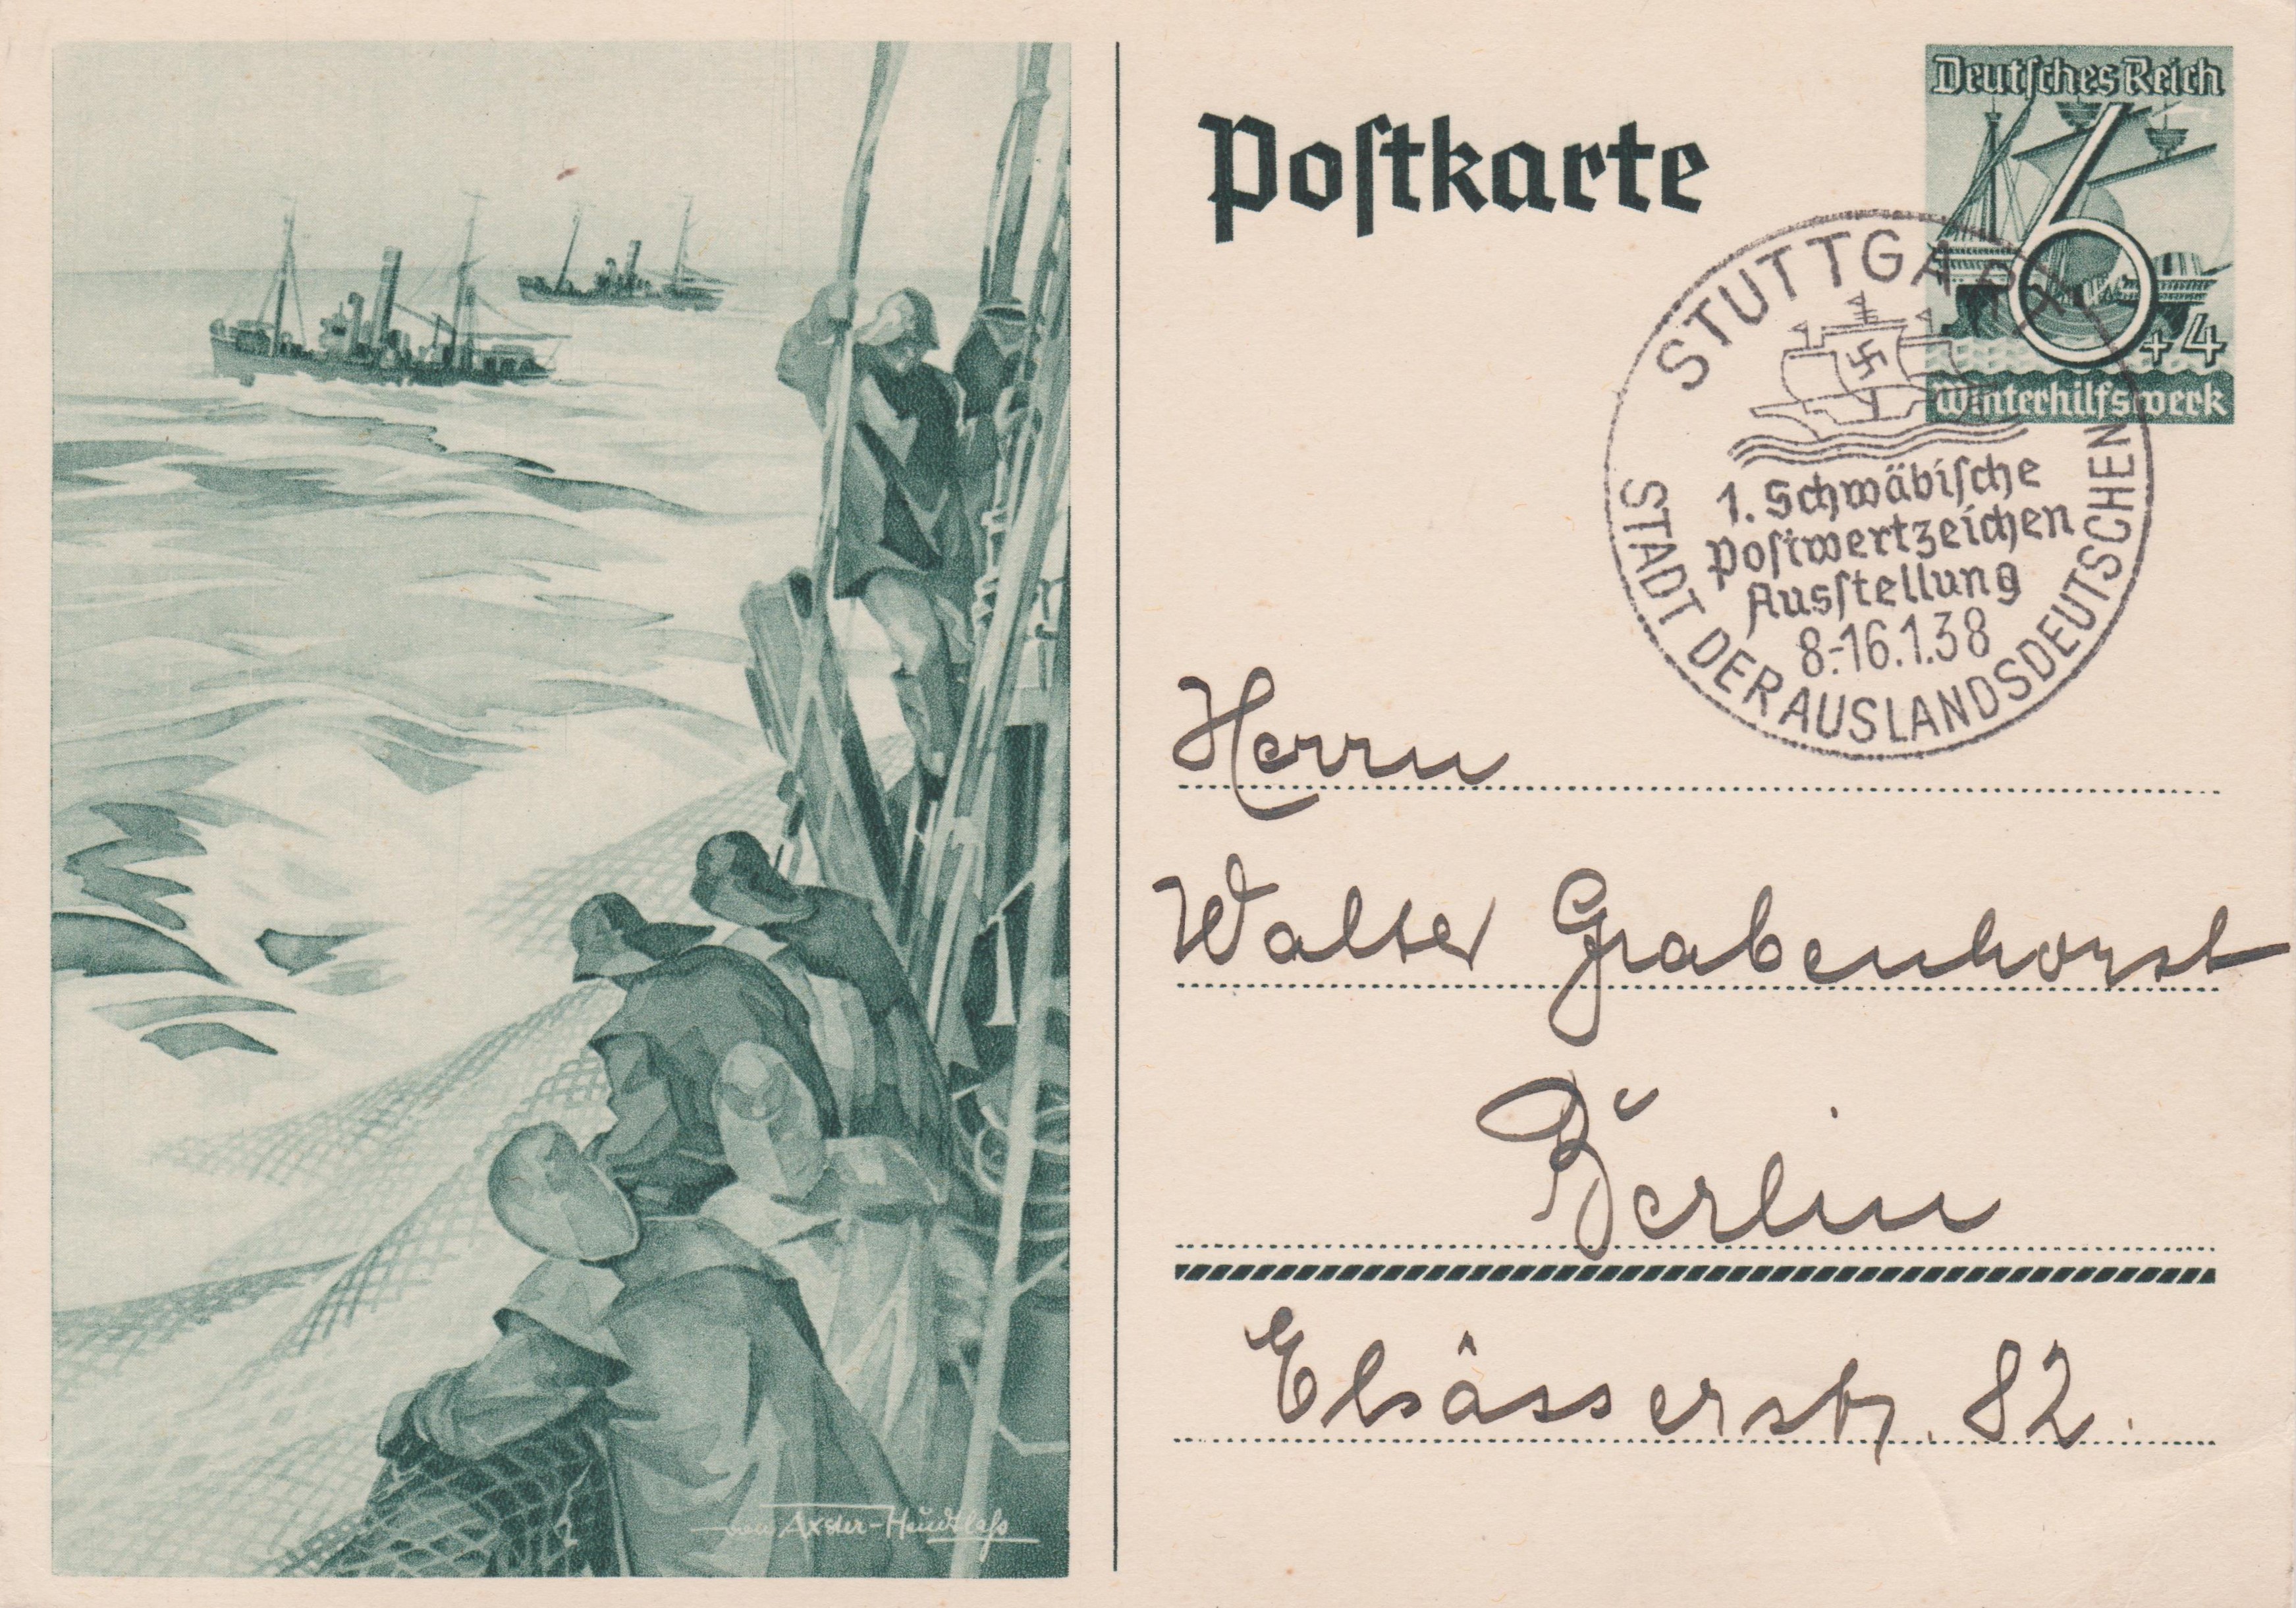 Postkarte
Deutsches Reich
6
+ 4
Winterhilfswerk
STUTTGART
1. Schwäbische
Postwertzeichen
Ausstellung
8.-16.1.38
STADT DER AUSLANDSDEUTSCHEN
Herrn
Walter Grabenhorst
Berlin
Elsässerstr. 82.
von Axster-Heudtlaß